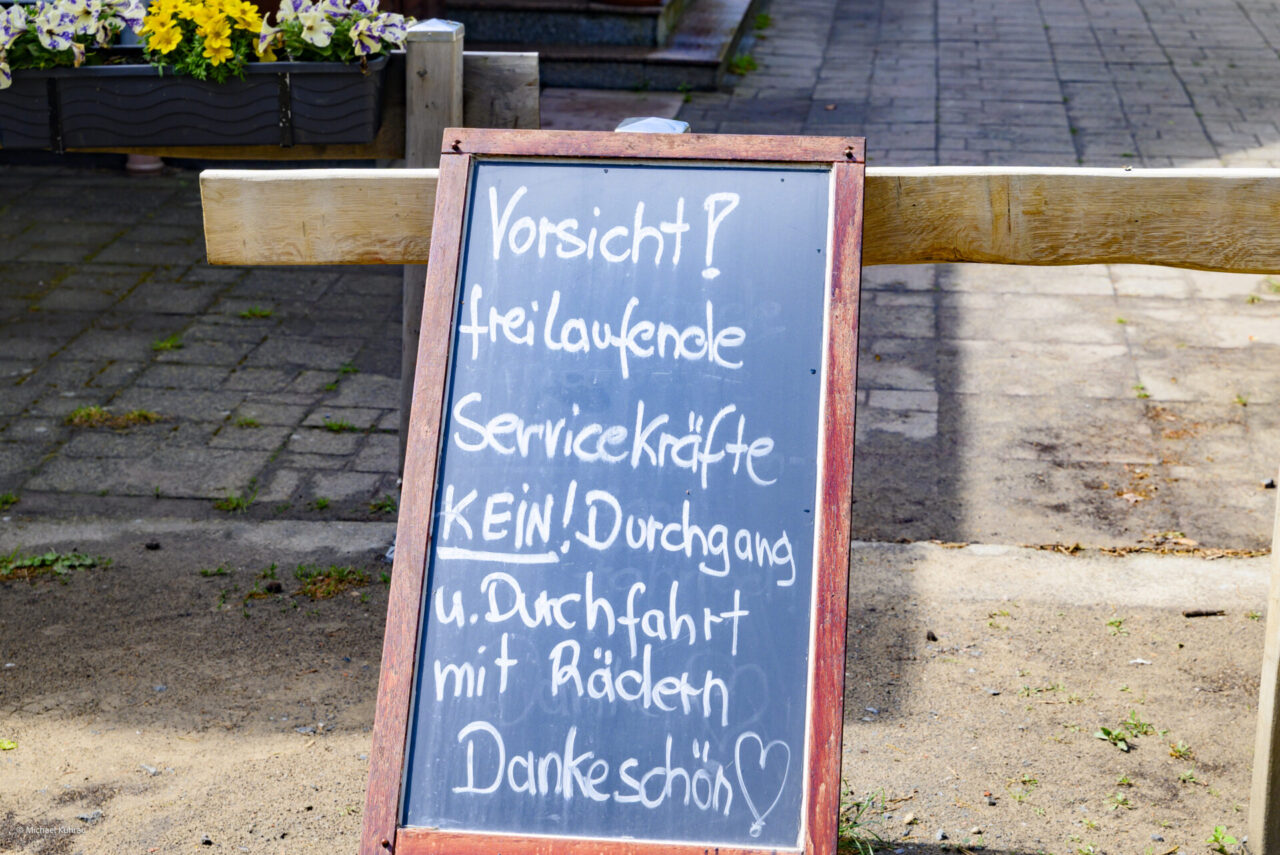 Vorsicht!
freilaufende
Servicekräfte
KEIN! Durchgang
u. Durchfahrt
mit Rädern
Dankeschön
© Michael Kuhrau